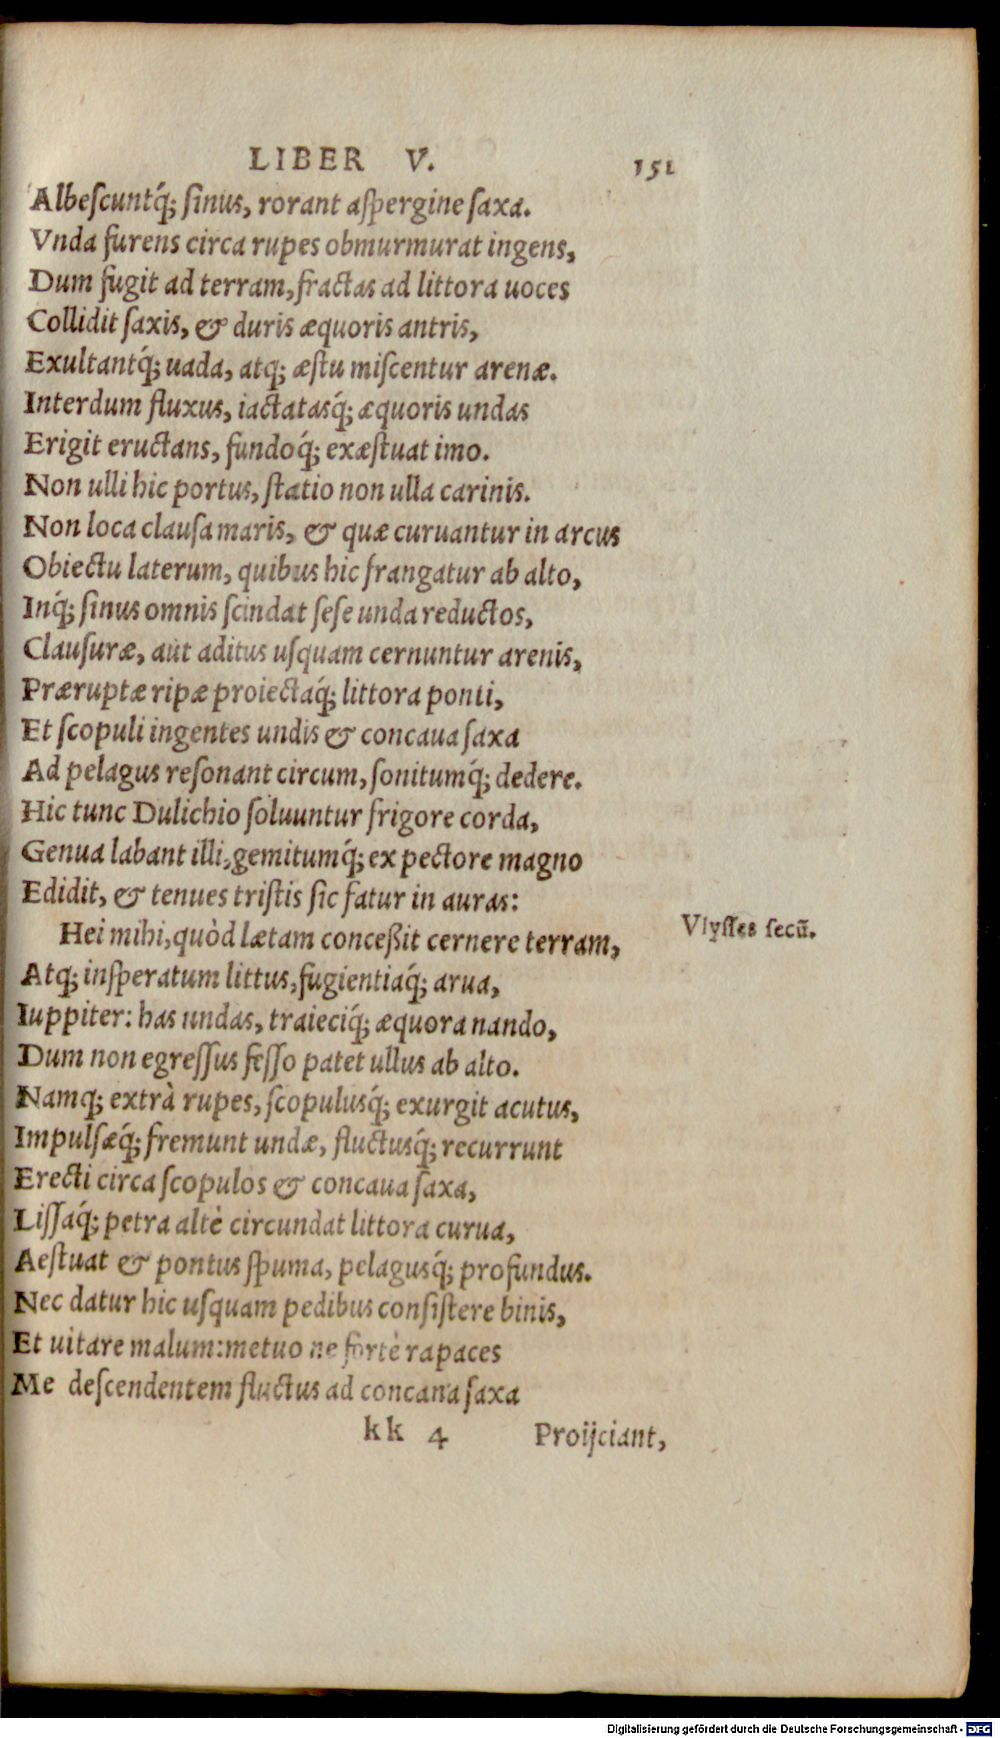 LIBER V. 151
Albeſcuntq́; ſinus, rorant aſpergine ſaxa.
Vnda furens circa rupes obmurmurat ingens,
Dum fugit ad terram, fractas ad littora uoces
Collidit ſaxis, & duris æquoris antris,
Exultantq́; uada, atq; æſtu miſcentur arenæ.
Interdum fluxus, iactatasq́; æquoris undas
Erigit eructans, fundoq́; exæſtuat imo.
Non ulli hic portus, ſtatio non ulla carinis.
Non loca clauſa maris, & quæ curuantur in arcus
Obiectu laterum, quibus hic frangatur ab alto,
Inq́; ſinus omnis ſcindat ſeſe unda reductos,
Clauſuræ, aut aditus uſquam cernuntur arenis,
Præruptæ ripæ proiectaq́; littora ponti,
Et ſcopuli ingentes undis & concaua ſaxa
Ad pelagus reſonant circum, ſonitumq́; dedere.
Hic tunc Dulichio ſoluuntur frigore corda,
Genua labant illi, gemitumq́; ex pectore magno
Edidit, & tenues triſtis ſic fatur in auras:
Hei mihi, quòd lætam conceßit cernere terram,
Vlyſſes ſecū.
Atq; inſperatum littus, fugientiaq́; arua,
Iuppiter: has undas, traieciq́; æquora nando,
Dum non egreſſus feſſo patet ullus ab alto.
Namq; extrà rupes, ſcopulusq́; exurgit acutus,
Impulſæq́; fremunt undæ, fluctusq́; recurrunt
Erecti circa ſcopulos & concaua ſaxa,
Liſſaq́; petra altè circundat littora curua,
Aeſtuat & pontus ſpuma, pelagusq́; profundus.
Nec datur hic uſquam pedibus conſiſtere binis,
Et uitare malum: metuo ne fortè rapaces
Me deſcendentem fluctus ad concaua ſaxa
kk 4 Proijciant,
Digitalisierung gefördert durch die Deutsche Forschungsgemeinschaft - DFG